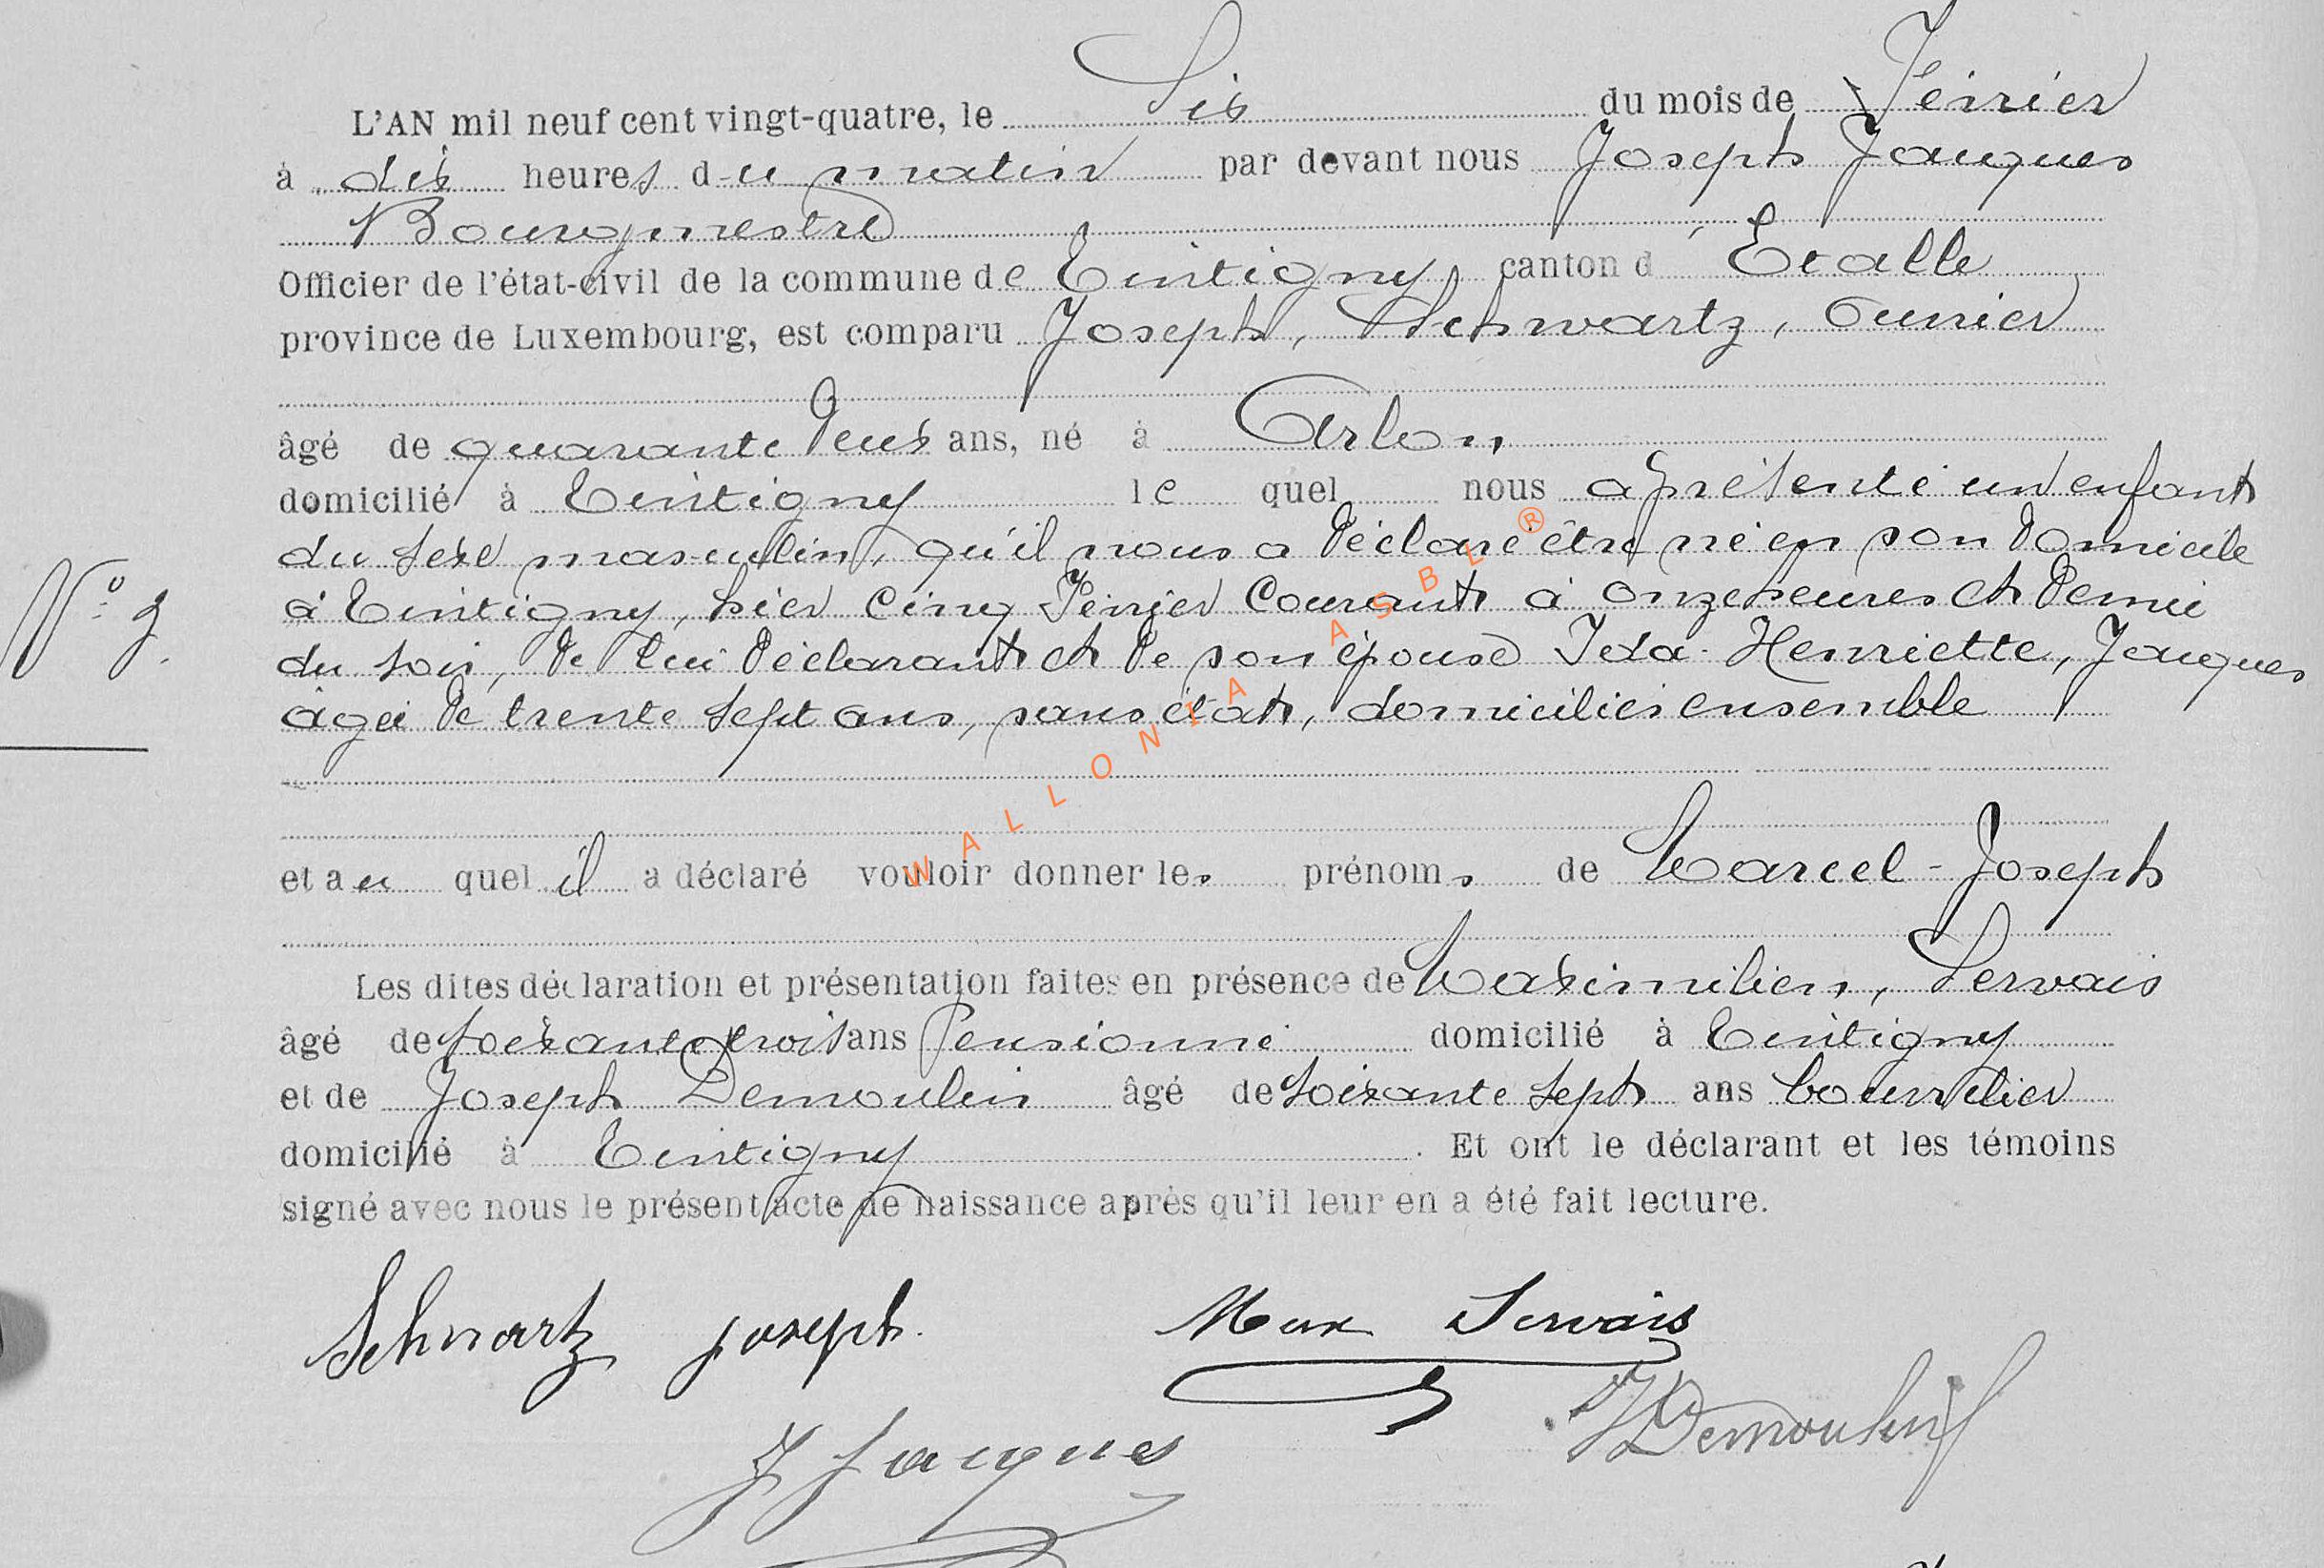 L'AN mil neuf cent vingt-quatre, le Six du mois de Février
à dix heures du matin par devant nous Joseph Jacques
Bourgmestre
Officier de l'état-civil de la commune de Tintigny canton d'Etalle
province de Luxembourg, est comparu Joseph, Schwartz, Ouvrier
âgé de quarante deux ans, né à Arlon,
domicilié à Tintigny le quel nous a présenté un enfant
du sexe masculin, qu'il nous a déclaré être né en son domicile
à Tintigny, hier cinq Février courant à onze heures et demie
du soir, de lui déclarant et de son épouse Ida-Henriette, Jacques
N°
âgée de trente sept ans, sans état, domiciliés ensemble
et au quel il a déclaré vouloir donner les prénoms de Marcel-Joseph
Les dites déclaration et présentation faites en présence de Maximilien, Servais
âgé de soixante trois ans Pensionné domicilié à Tintigny
et de Joseph Demoulin âgé de soixante sept ans bourrelier
domicilié à Tintigny. Et ont le déclarant et les témoins
signé avec nous le présent acte de naissance après qu'il leur en a été fait lecture.
Schwartz joseph. Max Servais
J Jacques Demoulin
WALLONIA ASBL ®